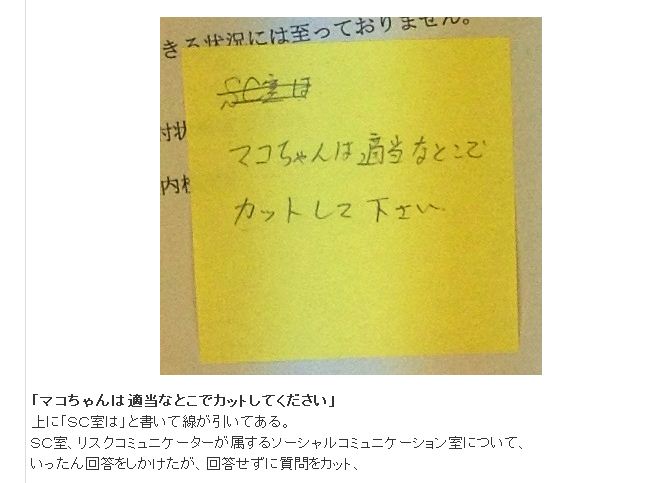 きる状況には至っておりません。
SC室は
マコちゃんは適当なとこで
カットして下さい
付状
内枠
「マコちゃんは適当なとこでカットしてください」
上に「SC室は」と書いて線が引いてある。
SC室、リスクコミュニケーターが属するソーシャルコミュニケーション室について、
いったん回答をしかけたが、回答せずに質問をカット、